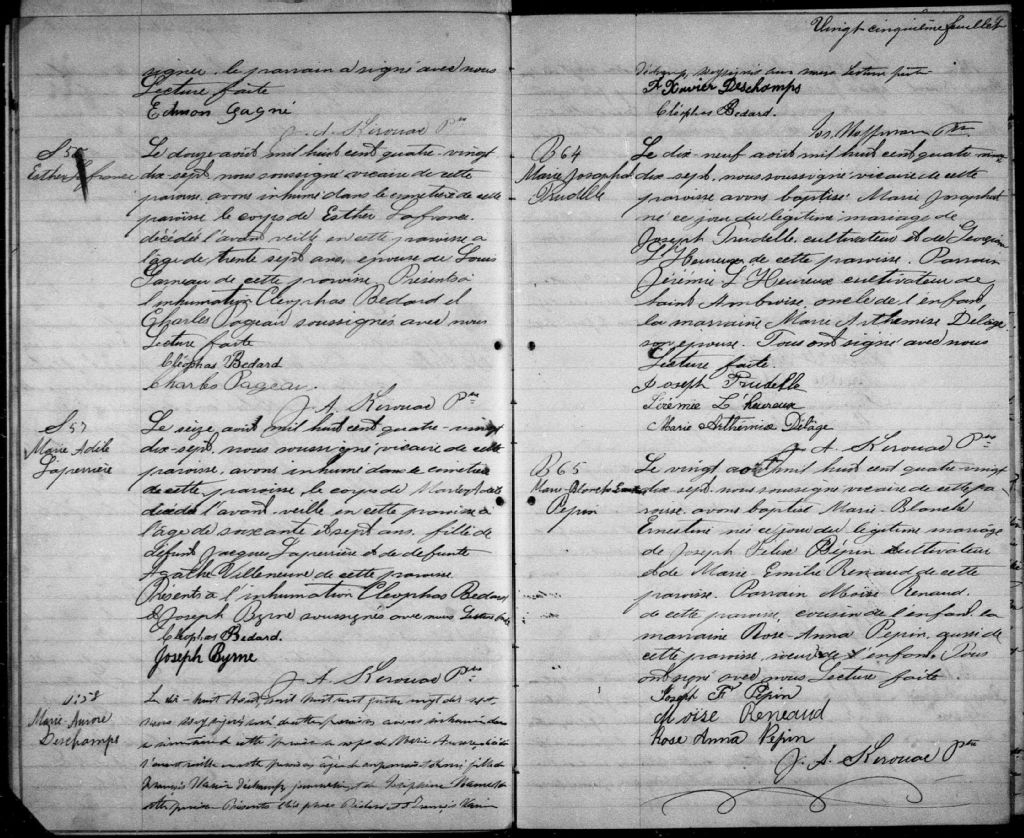 signer, le parrain a signé avec nous
Lecture faite
Edmon Gagné
J. A. Kerouac Ptre
S 56
Esther Lafrance
Le douze août mil huit cent quatre-vingt
dix-sept, nous soussigné vicaire de cette
paroisse, avons inhumé dans le cimetière de cette
paroisse le corps de Esther Lafrance.
décédée l'avant veille en cette paroisse a
l'âge de trente sept ans, épouse de Louis
de cette paroisse. Présents a
l'inhumation Cleophas Bedard et
Charles Pageau soussignés avec nous
Lecture faite
Cléophas Bedard
Charles Pageau.
J. A. Kerouac Ptre
S 57
Marie Adèle
Laperrière
Le seize août mil huit cent quatre-vingt
dix-sept, nous soussigné vicaire de cette
paroisse, avons inhumé dans le cimetière
de cette paroisse, le corps de
l'avant-veille en cette paroisse à
l'âge de soixante et sept ans, fille de
défunt Jacques Laperrière et de défunte
Agathe Villeneuve de cette paroisse.
Présents a l'inhumation Cleophas Bedard
& Joseph Byrne soussignés avec nous Lecture faite
Cléophas Bedard.
Joseph Byrne
J. A. Kerouac Ptre
S 58
Marie-Aurore
Deschamps
Le dix-huit Août, mil huit cent quatre vingt dix sept,
nous soussigné curé de cette paroisse avons inhumé dans
le cimetière de cette paroisse le corps de Marie Aurore
l'avant veille en cette paroisse âgée de fille de
François Xavier Déchamps journalier et de Joséphine
cette paroisse Présents Cléophas Bedard et François Xavier
Vingt cinquième feuillet
Déchamp, soussignés avec nous Lecture faite
F. Xavier Deschamps
Cléophas Bedard.
Jos. Hoffman Ptre
B 64
Marie Josaphat
Trudelle
Le dix-neuf août mil huit cent quatre vingt
dix-sept, nous soussigné vicaire de cette
paroisse avons baptisé Marie Josaphat
né ce jour du légitime mariage de
Joseph Trudelle, cultivateur et de
L'Heureux de cette paroisse. Parrain
Jérémie L'Heureux cultivateur de
Saint Ambroise, oncle de l'enfant,
la marraine Marie Arthémise Délâge
son épouse. Tous ont signé avec nous
Lecture faite.
Joseph Trudelle
Jérémie L'heureux
Marie Arthémise Délâge
J. A. Kerouac Ptre
B 65
Marie Blanche
Pepin
Le vingt août mil huit cent quatre vingt
dix sept, nous soussigné vicaire de cette pa
roisse, avons baptisé Marie-Blanche
Ernestine née ce jour du légitime mariage
de Joseph Felix Pépin cultivateur
et de Marie-Emilie Renaud de cette
paroisse. Parrain Moïse Renaud.
de cette paroisse, cousin de l'enfant la
marraine Rose-Anna Pepin, aussi de
cette paroisse, soeur de l'enfant. Tous
ont signé avec nous Lecture faite
Joseph F Pépin
Moïse Reneaud
Rose Anna Pepin
J. A. Kerouac Ptre